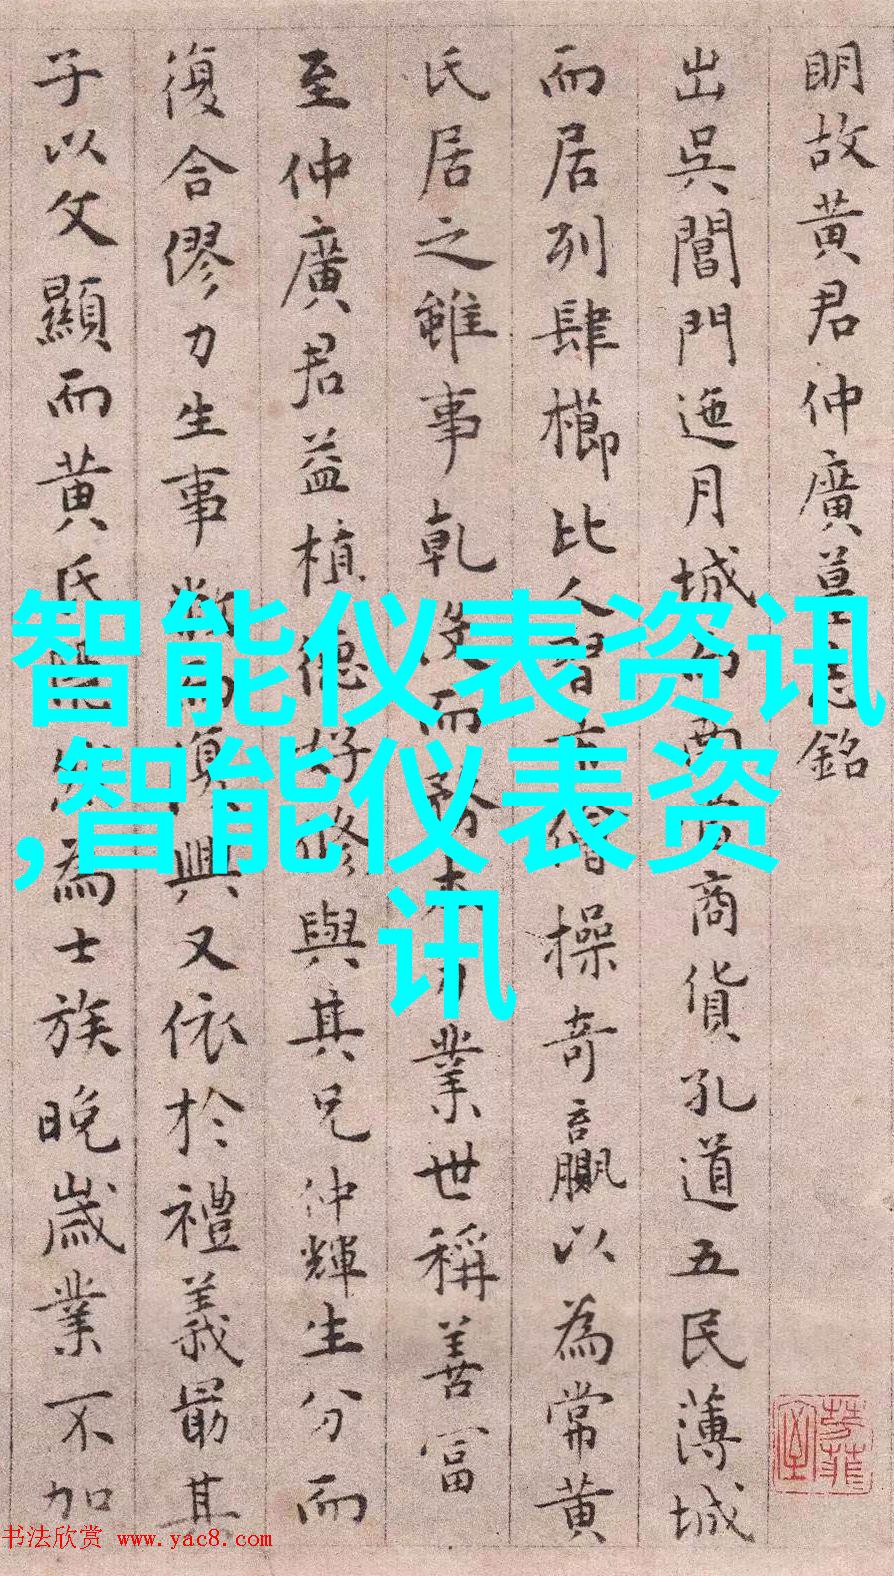 明故黄君仲廣墓志銘
出吳閶門迤月城而西商貨孔道五民薄城
而居列肆櫛比人習市儈操奇贏以為常黄
氏居之雖事乾没而務本業世稱善富
至仲廣君益植德好修與其兄仲輝生分而
復合僇力生事復興又依於禮義最其
子以文顯而黄氏為士族晚歲業不加
智能仪表资讯
,智能仪表资
讯
书法欣赏 www.yac8.com